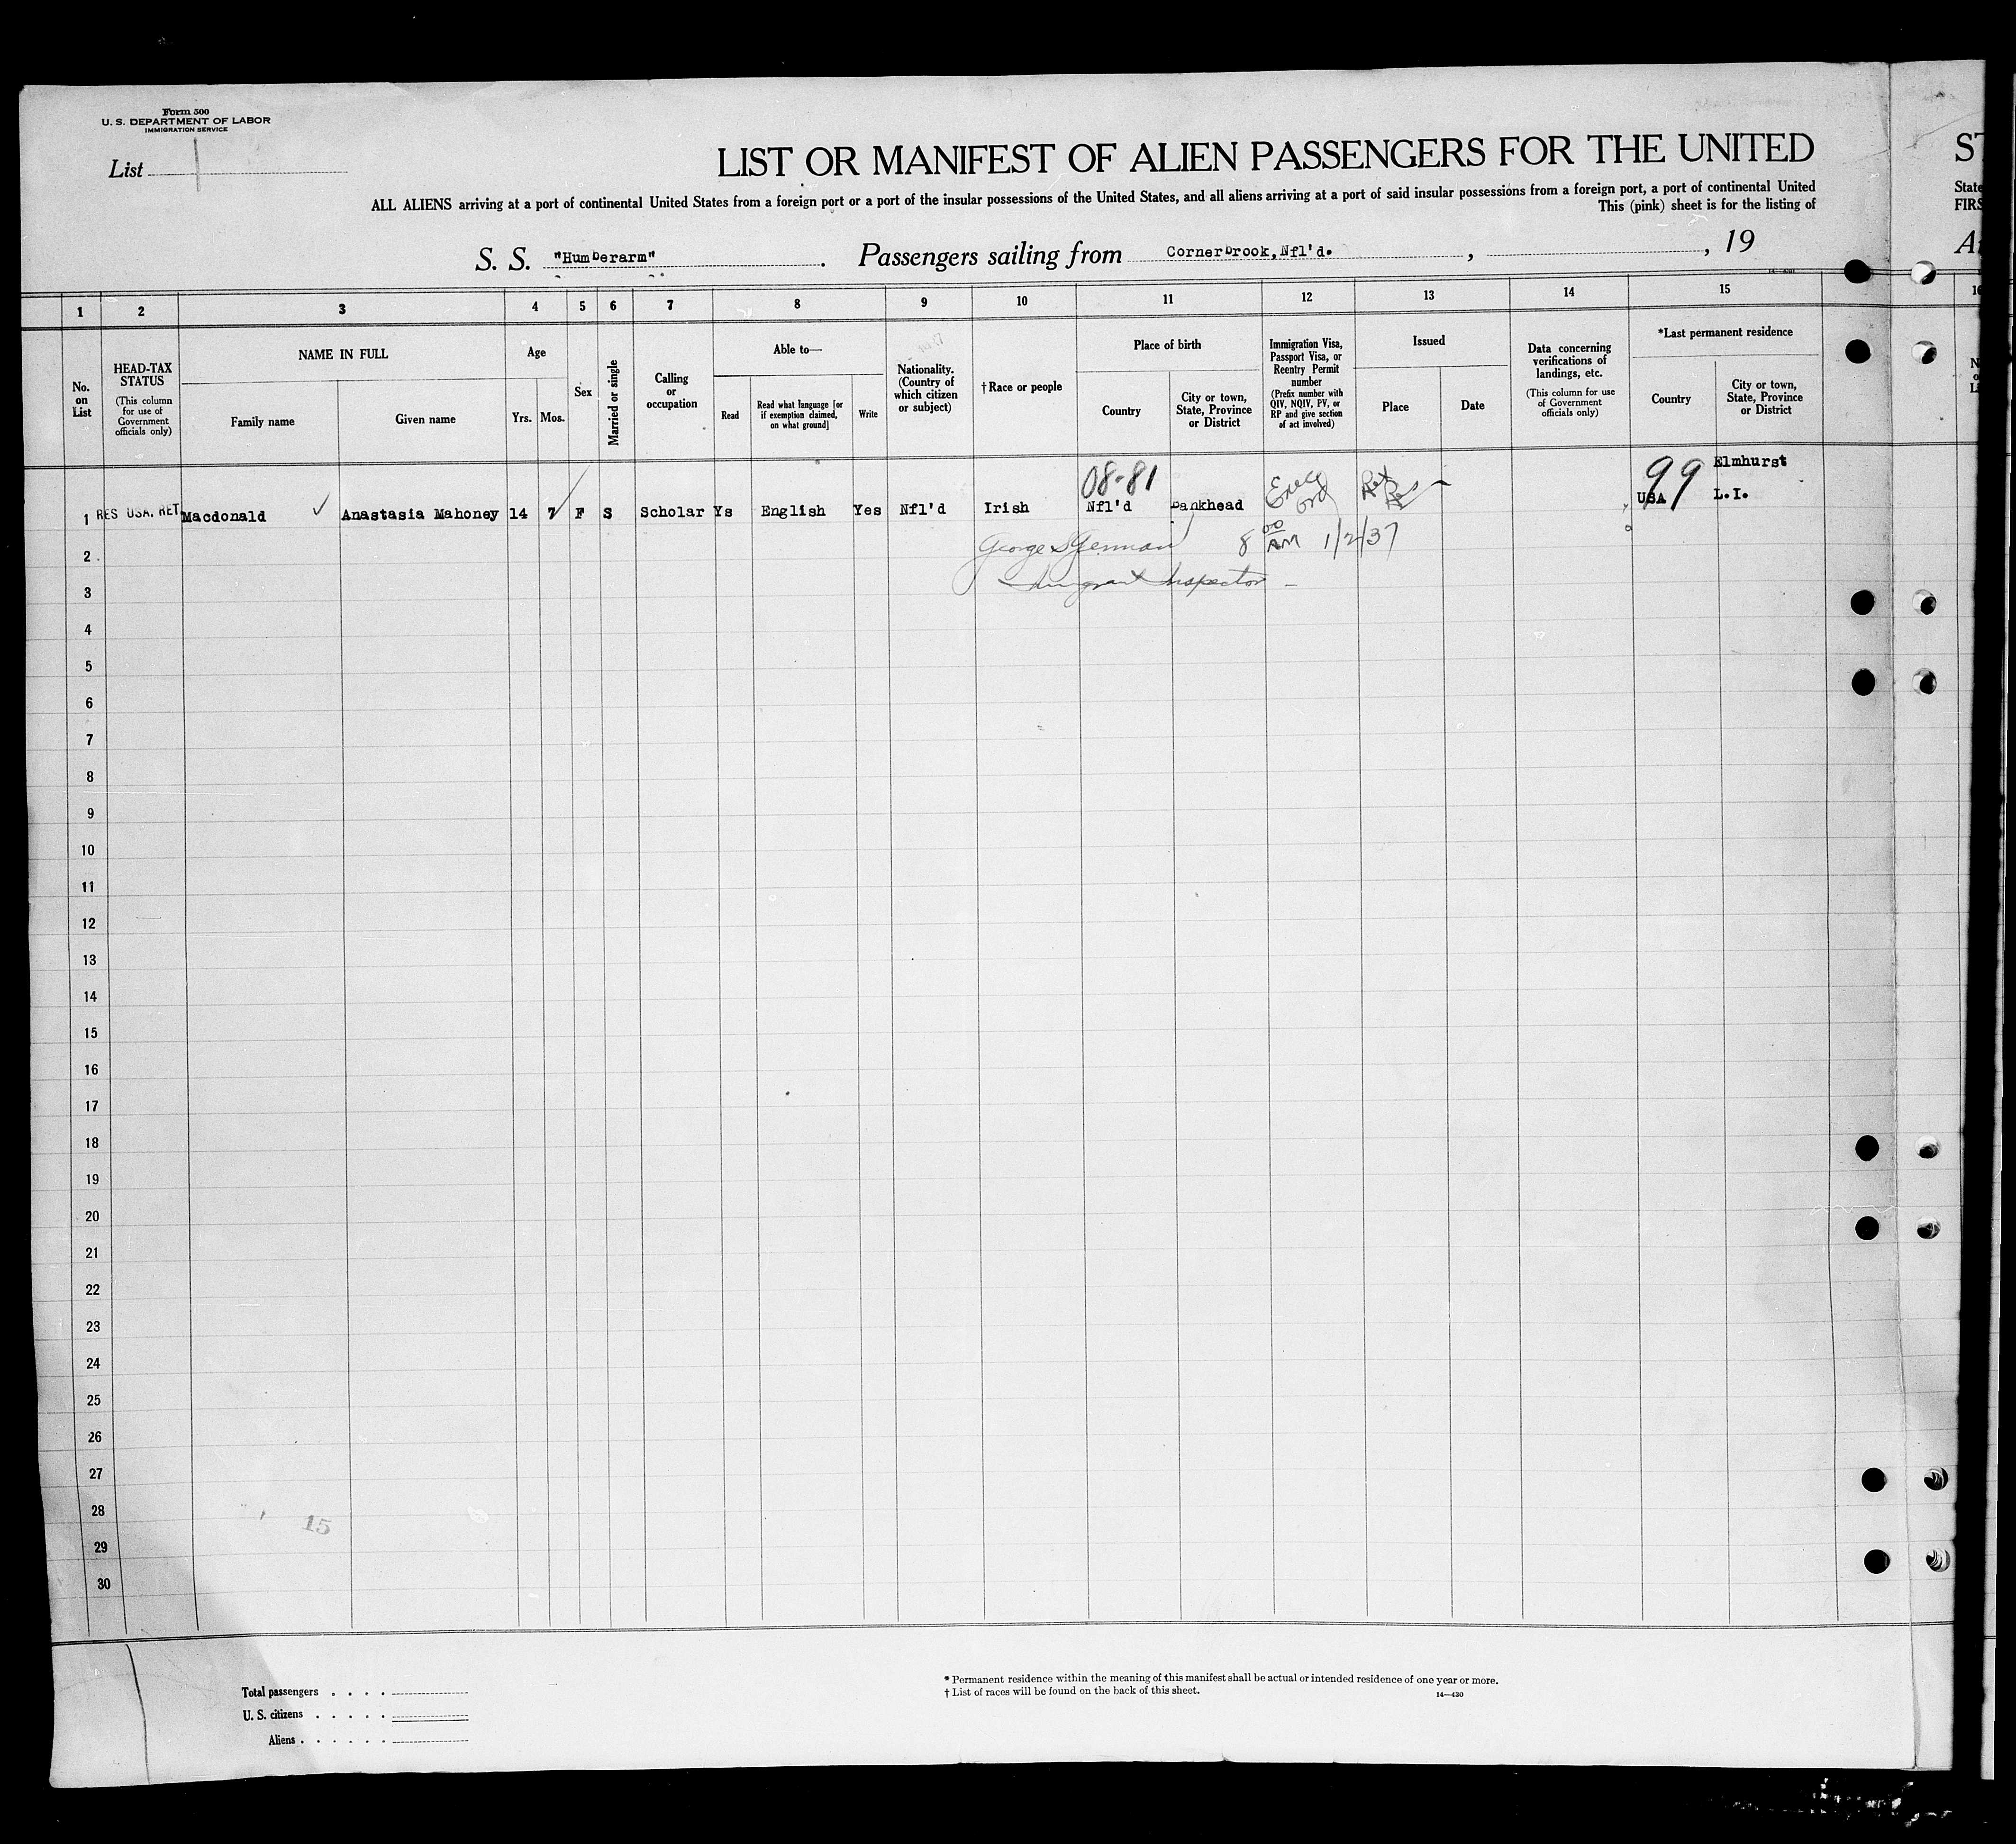 Form 500
U. S. DEPARTMENT OF LABOR
IMMIGRATION SERVICE
List 1
LIST OR MANIFEST OF ALIEN PASSENGERS FOR THE UNITED
ST
ALL ALIENS arriving at a port of continental United States from a foreign port or a port of the insular possessions of the United States, and all aliens arriving at a port of said insular possessions from a foreign port, a port of continental United
State
This (pink) sheet is for the listing of
FIRS
S. S. "Humberarm". Passengers sailing from Cornerbrook, Nfl'd. , , 19
1 2 3 4 5 6 7 8 9 10 11 12 13 14 15
No. on List
HEAD-TAX STATUS
(This column for use of Government officials only)
NAME IN FULL
Family name
Given name
Age
Yrs. Mos.
Sex
Married or single
Calling or occupation
Able to—
Read
Read what language [or if exemption claimed, on what ground]
Write
Nationality. (Country of which citizen or subject)
†Race or people
Place of birth
Country
City or town, State, Province or District
Immigration Visa, Passport Visa, or Reentry Permit number
(Prefix number with QIV, NQIV, PV, or RP and give section of act involved)
Issued
Place
Date
Data concerning verifications of landings, etc.
(This column for use of Government officials only)
*Last permanent residence
Country
City or town, State, Province or District
08-81
99
Elmhurst
1 RES USA. RET. Macdonald ✓ Anastasia Mahoney 14 7 F S Scholar Ys English Yes Nfl'd Irish Nfl'd Bankhead Exec Ord Ret Res USA L.I.
2 George S German 8 00 AM 1/2/37
3 Immigrant Inspector
4
5
6
7
8
9
10
11
12
13
14
15
16
17
18
19
20
21
22
23
24
25
26
27
28
15
29
30
Total passengers . . . .
U. S. citizens . . . . .
Aliens . . . . . .
* Permanent residence within the meaning of this manifest shall be actual or intended residence of one year or more.
† List of races will be found on the back of this sheet.
14—430